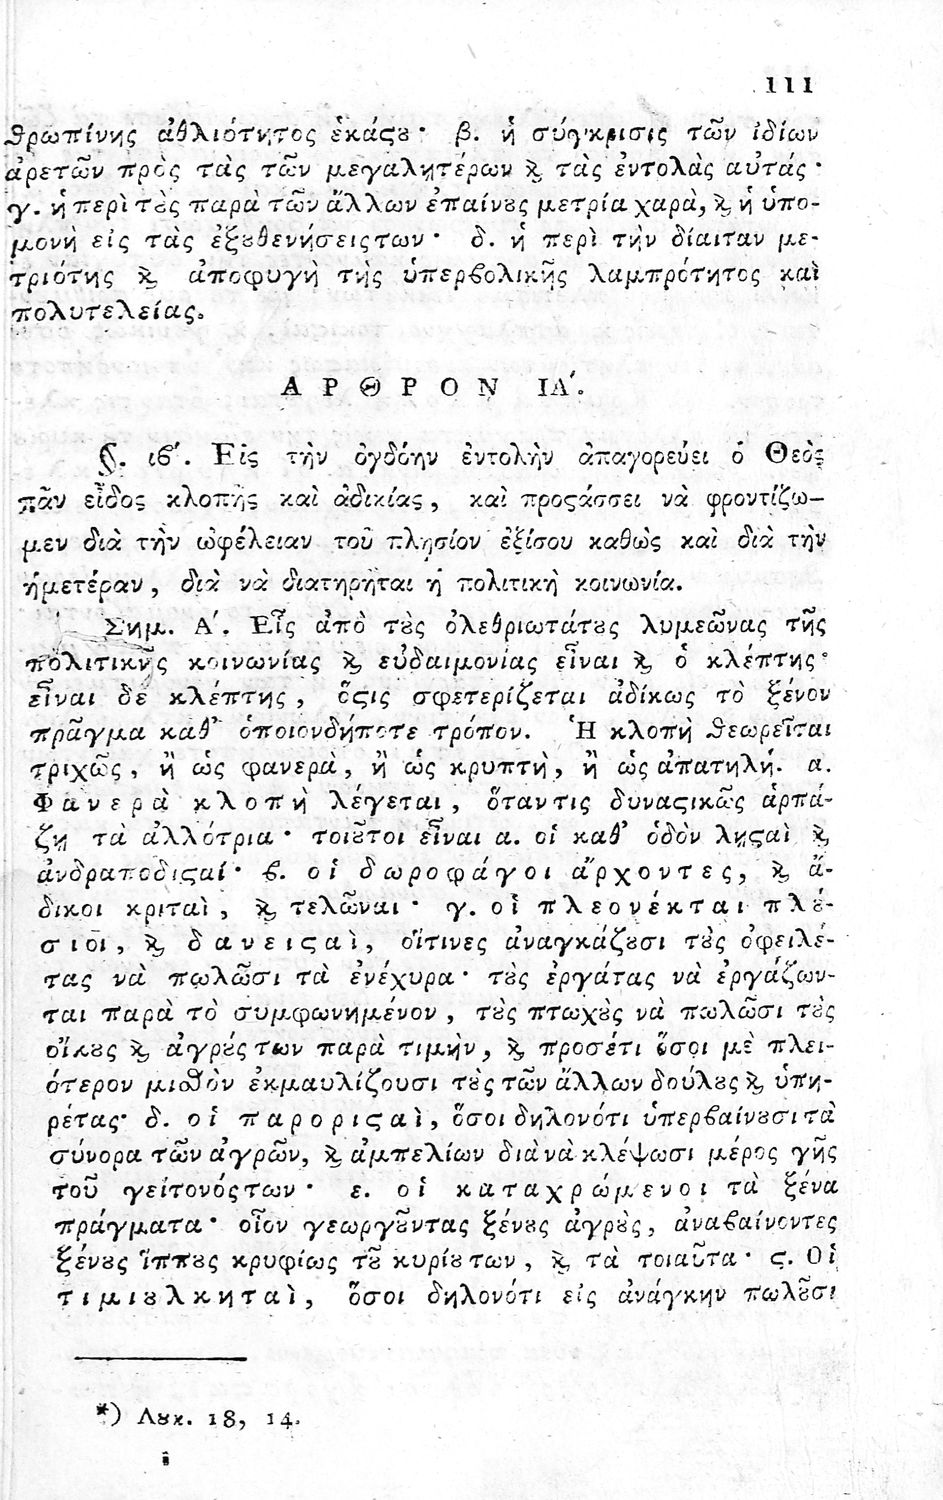 111
θρωπίνης ἀθλιότητος ἑκάϛȣ· β. ἡ σύγκρισις τῶν ἰδίων
ἀρετῶν πρὸς τὰς τῶν μεγαλητέρων ϗ τὰς ἐντολὰς αὐτάς·
γ. ἡ περὶ τȣ̀ς παρὰ τῶν ἄλλων ἐπαίνȣς μετρία χαρὰ, ϗ ἡ ὑπο-
μονὴ εἰς τὰς ἐξȣθενήσεις των· δ. ἡ περὶ τὴν δίαιταν με-
τριότης ϗ ἀποφυγὴ τῆς ὑπερβολικῆς λαμπρότητος καὶ
πολυτελείας.
ΑΡΘΡΟΝ ΙΑ΄.
§. ιβ΄. Εἰς τὴν ὀγδόην ἐντολὴν ἀπαγορεύει ὁ Θεὸς
πᾶν εἶδος κλοπῆς καὶ ἀδικίας, καὶ προϛάσσει νὰ φροντίζω-
μεν διὰ τὴν ὠφέλειαν τοῦ πλησίον ἐξίσου καθὼς καὶ διὰ τὴν
ἡμετέραν, διὰ νὰ διατηρῆται ἡ πολιτικὴ κοινωνία.
Σημ. Α΄. Εἷς ἀπὸ τȣ̀ς ὀλεθριωτάτȣς λυμεῶνας τῆς
πολιτικῆς κοινωνίας ϗ εὐδαιμονίας εἶναι ϗ ὁ κλέπτης·
εἶναι δὲ κλέπτης, ὅϛις σφετερίζεται ἀδίκως τὸ ξένον
πρᾶγμα καθ' ὁποιονδήποτε τρόπον. Ἡ κλοπὴ θεωρεῖται
τριχῶς, ἢ ὡς φανερὰ, ἢ ὡς κρυπτὴ, ἢ ὡς ἀπατηλή. α.
Φανερὰ κλοπὴ λέγεται, ὅταν τις δυναϛικῶς ἁρπά-
ζῃ τὰ ἀλλότρια· τοιȣ͂τοι εἶναι α. οἱ καθ' ὁδὸν λῃϛαὶ ϗ
ἀνδραποδιϛαί· β. οἱ δωροφάγοι ἄρχοντες, ϗ ἄ-
δικοι κριταὶ, ϗ τελῶναι· γ. οἱ πλεονέκται πλȣ́-
σιοι, ϗ δανειϛαὶ, οἵτινες ἀναγκάζȣσι τȣ̀ς ὀφειλέ-
τας νὰ πωλῶσι τὰ ἐνέχυρα· τȣ̀ς ἐργάτας νὰ ἐργάζων-
ται παρὰ τὸ συμφωνημένον, τȣ̀ς πτωχȣ̀ς νὰ πωλῶσι τȣ̀ς
οἴκȣς ϗ ἀγρȣ́ς των παρὰ τιμὴν, ϗ προσέτι ὅσοι μὲ πλει-
ότερον μισθὸν ἐκμαυλίζουσι τȣ̀ς τῶν ἄλλων δούλȣς ϗ ὑπη-
ρέτας· δ. οἱ παροριϛαὶ, ὅσοι δηλονότι ὑπερβαίνȣσι τὰ
σύνορα τῶν ἀγρῶν, ϗ ἀμπελίων διὰ νὰ κλέψωσι μέρος γῆς
τοῦ γείτονός των· ε. οἱ καταχρώμενοι τὰ ξένα
πράγματα· οἷον γεωργȣ͂ντας ξένȣς ἀγρȣ̀ς, ἀναβαίνοντες
ξένȣς ἵππȣς κρυφίως τȣ͂ κυρίȣ των, ϗ τὰ τοιαῦτα· ϛ. Οἱ
τιμιȣλκηταὶ, ὅσοι δηλονότι εἰς ἀνάγκην πωλȣ͂σι
*) Λȣκ. 18, 14.